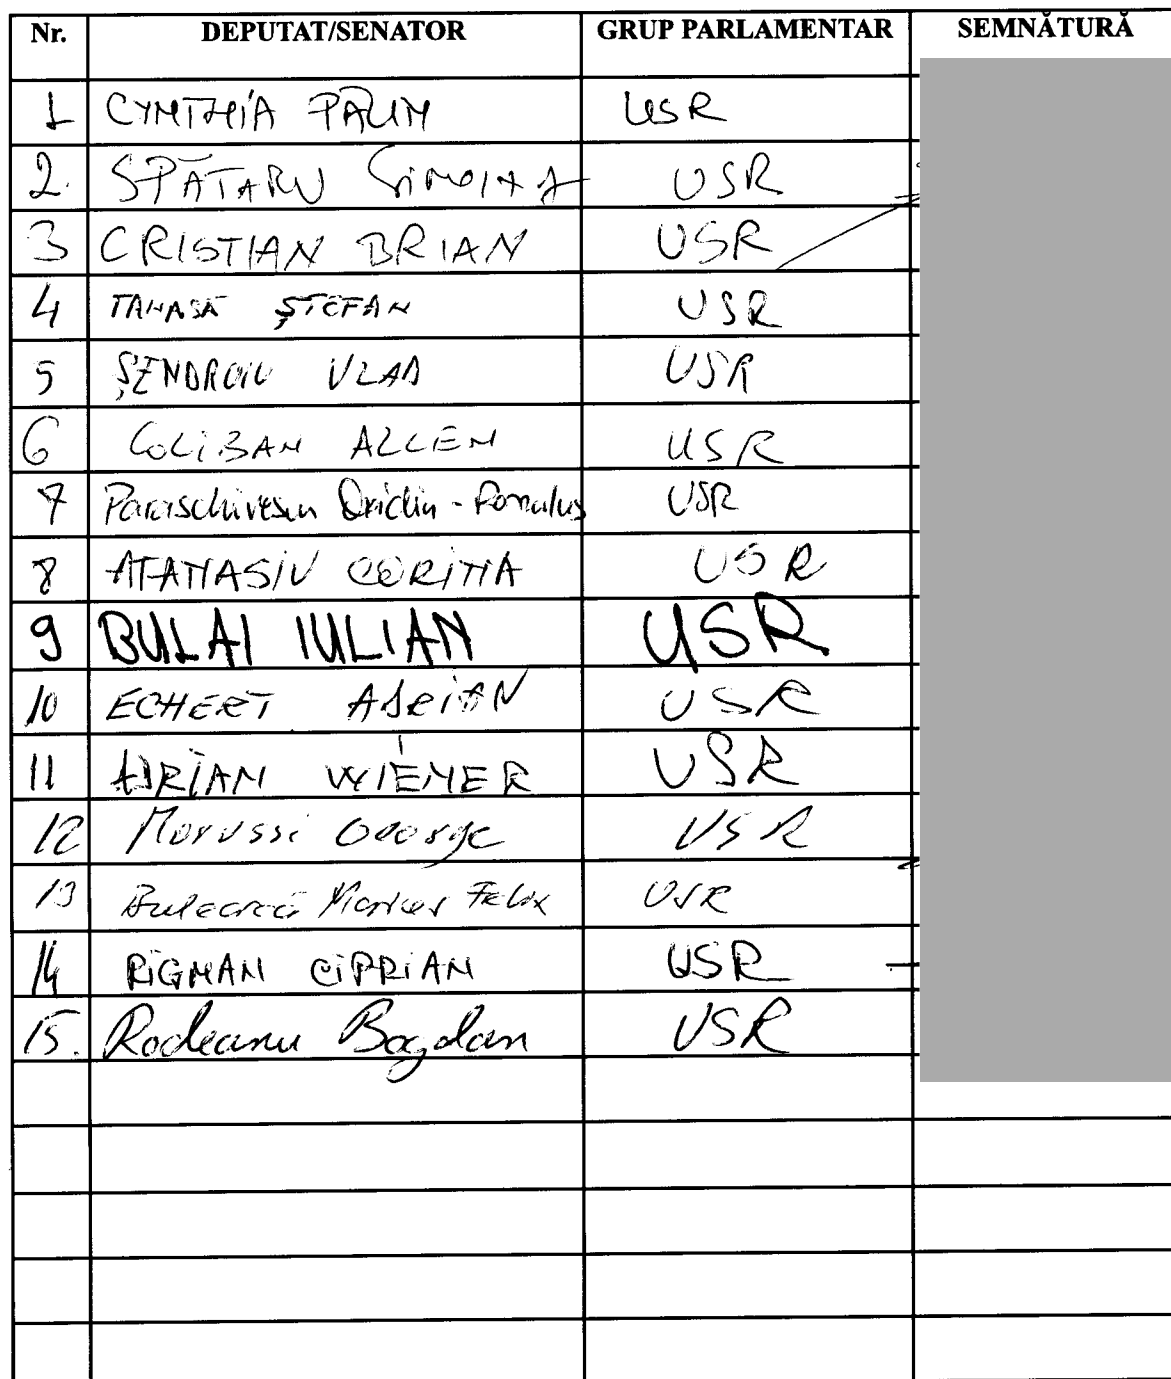 Nr. DEPUTAT/SENATOR GRUP PARLAMENTAR SEMNĂTURĂ
1 CYNTHIA PĂUN USR
2. SPĂTARU SIMONA USR
3 CRISTIAN BRIAN USR
4 TANASĂ ȘTEFAN USR
5 ȘENDROIU VLAD USR
6 COLIBAN ALLEN USR
7 Paraschivescu Ovidiu-Romulus USR
8 ATANASIU CORINA USR
9 BULAI IULIAN USR
10 ECHERT ADRIAN USR
11 ADRIAN WIENER USR
12 George USR
13 Felix USR
14 RIGMAN CIPRIAN USR
15. Rodeanu Bogdan USR